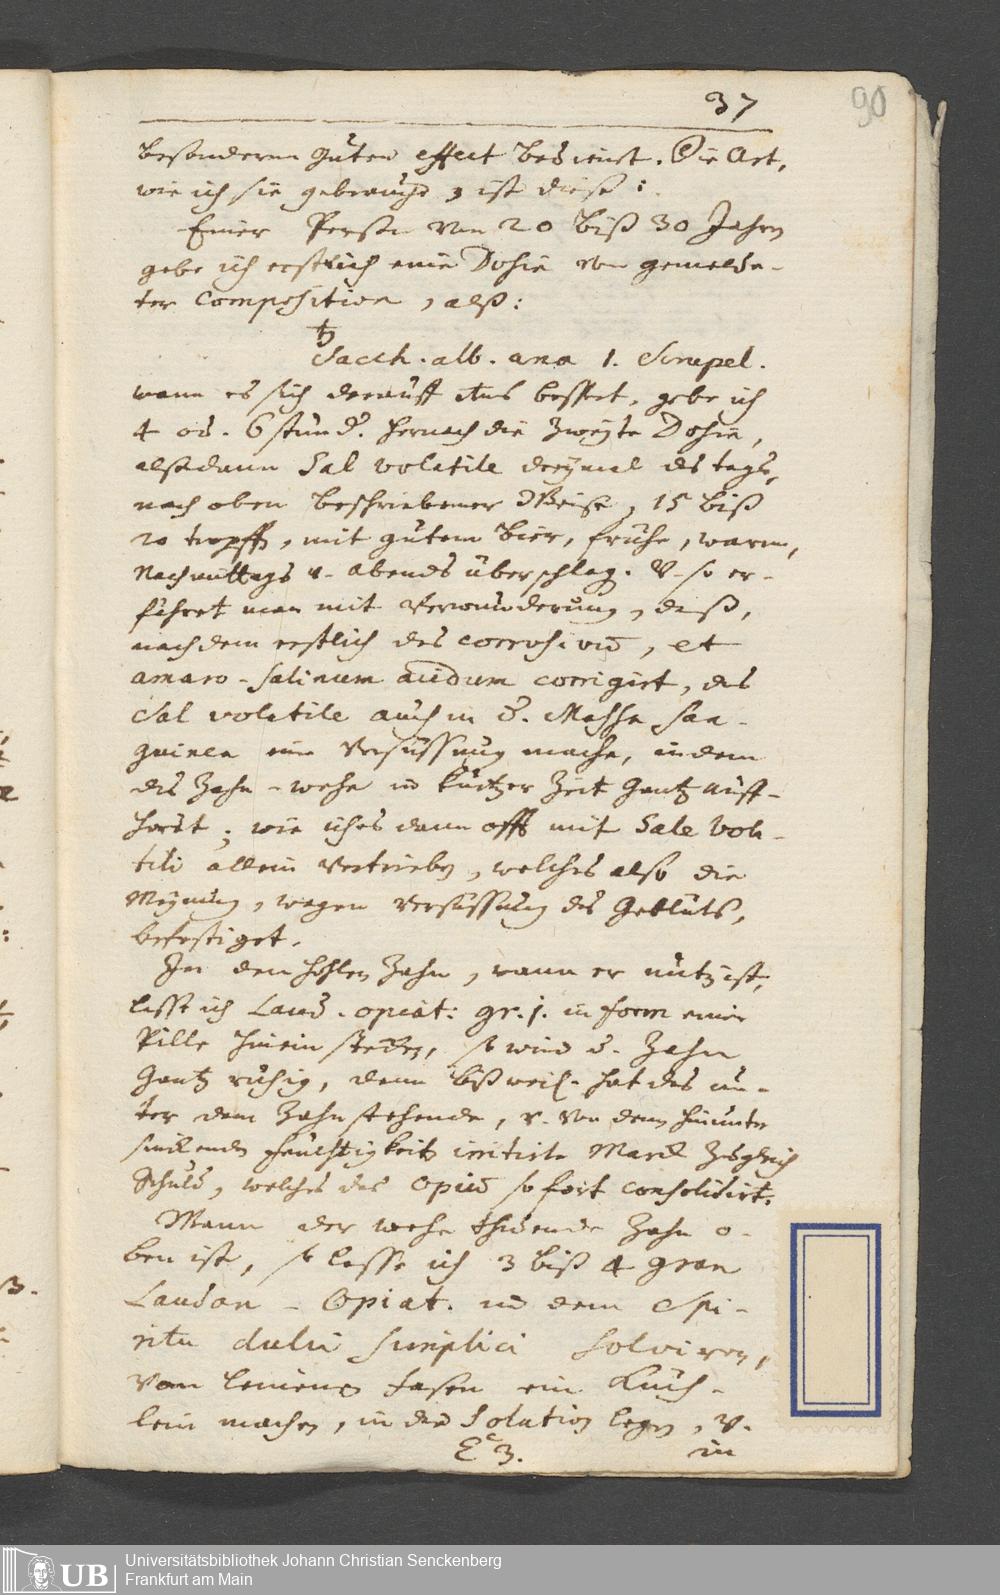 37
90
besonderm guten effect bedienst. Die Art,
wie ich sie gebrauche, ist diese:
Einer Person von 20 biß 30 Jahren
gebe ich erstlich eine Dosin von gemelde-
ter Composition, alß:
♄
Sacch. alb. ana 1. Scrupel.
wann es sich darauff etws bessert, gebe ich
4 od. 6 stund. hernach die zweyte Dosin,
alßdann Sal volatile dreymal des tags,
nach oben beschriebener Weise, 15 biß
20 tropffen, mit gutem bier, frühe, warm,
Nachmittags v. abends überschlag. V. so er-
fähret man mit Verwunderung, daß,
nachdem erstlich das corrosivū, et
amaro-salinum acidum corrigirt, das
Sal volatile auch in d. Massa san-
guinea eine Versüssung mache, indem
das Zahn-wehe in kurtzer Zeit gantz auff-
höret; wie ichs dann offt mit Sale vola-
tili allein vertrieben, welches also die
Meynung, wegen versüssung des Geblüts,
befestiget.
In den hohlen Zahn, wann er nutz ist,
lasse ich Laud. opiat: gr. j. in form einer
Pille hinein stecken, so wird d. Zahn
gantz ruhig, dann bißweil. hat das un-
ter dem Zahn stehende, v. von dem hinunter
sinckenden feuchtigkeit irritirte Marck zugleich
Schuld, welches das opiū sofort consolidirt.
Wann der wehe thuende Zahn o-
ben ist, so lasse ich 3 biß 4 gran
Laudan-Opiat. in dem Spi-
ritu dulci simplici solviren,
von leinen fasen ein Küch-
lein machen, in die Solution legen, v.
E 3. in
Universitätsbibliothek Johann Christian Senckenberg
Frankfurt am Main
UB